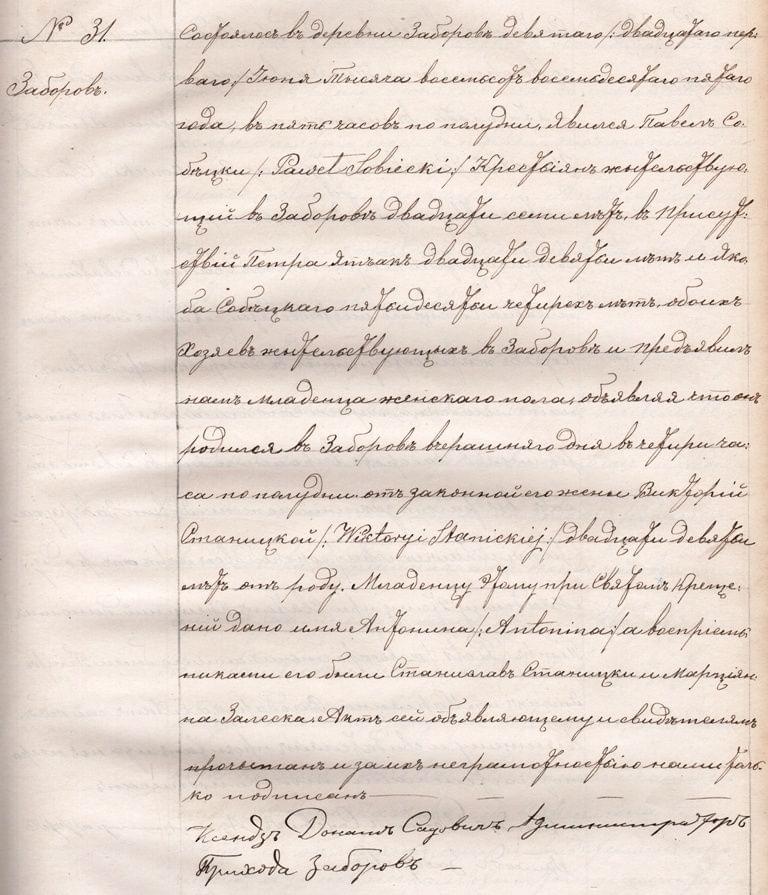 № 31.
Заборовъ.
Состоялось въ деревни Заборовѣ девятаго /: двадцатаго пер:
ваго :/ Іюня Тысяча восемьсотъ восемьдесятаго пятаго
года, въ пять часовъ по полудни. Явился Павелъ Со:
бѣцки /: Paweł Sobiecki :/ Крестіянъ жительствую:
щій въ Заборовѣ двадцати семи лѣтъ, въ присут:
ствій Петра двадцати девяти лѣтъ и Яко
ба Собѣцкаго пятидесяти четирехъ лѣтъ, обоихъ
Хозяевъ жительствующыхъ въ Заборовѣ и предъявилъ
намъ младенца женскаго пола, объявляя что онъ
родился въ Заборовѣ вчерашняго дня въ четири ча:
са по полудни отъ законной его жены Викторій
Станицкой /: Wiktoryi Stanickiej :/ двадцати девяти
лѣтъ отъ роду. Младенцу этому при Святомъ Креще:
ній дано имя Антонина /: Antonina :/ а воспріем:
никами его были Станиславъ Станицки и Марціян:
на Залеска. Актъ сей объявляющему и свидѣтелямъ
прочытанъ и за ихъ неграмотностію нами толь:
ко подписанъ
Ксендзъ Донатъ Садовичъ Администраторъ
Прихода Заборовъ